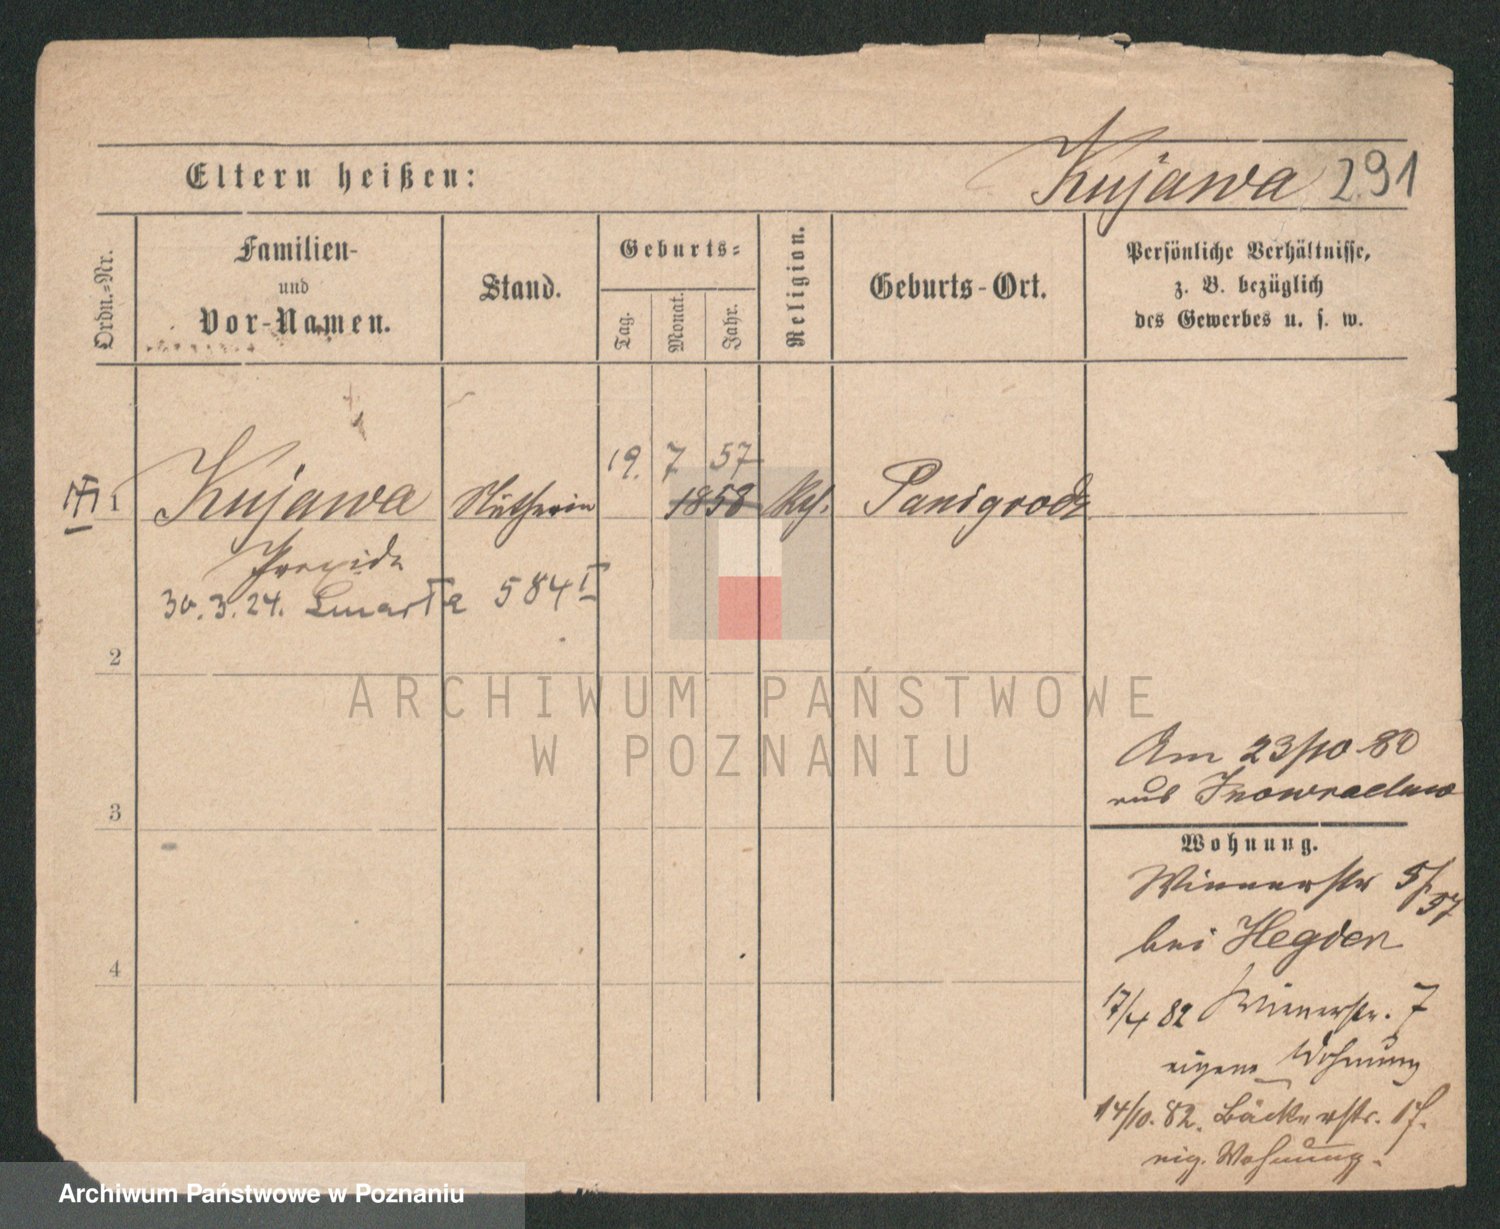 Kujawa 291
Eltern heißen:
Ordn.-Nr.
Familien-
und
Vor-Namen.
Stand.
Geburts-
Tag.
Monat.
Jahr.
Religion.
Geburts-Ort.
Persönliche Verhältnisse,
z. B. bezüglich
des Gewerbes u. s. w.
19. 7 57
1 Kujawa Nätherin 1858 Panigrodz
30.3.24. 584 I
2
3
4
Am 23/10 80
aus Inowraclaw
Wohnung.
Wienerstr 5/
bei Hegden
17/4 82 Wienerstr. 7
eigene Wohnung
14/10. 82. Bäckerstr. 17.
eig. Wohnung.
ARCHIWUM PAŃSTWOWE
W POZNANIU
Archiwum Państwowe w Poznaniu